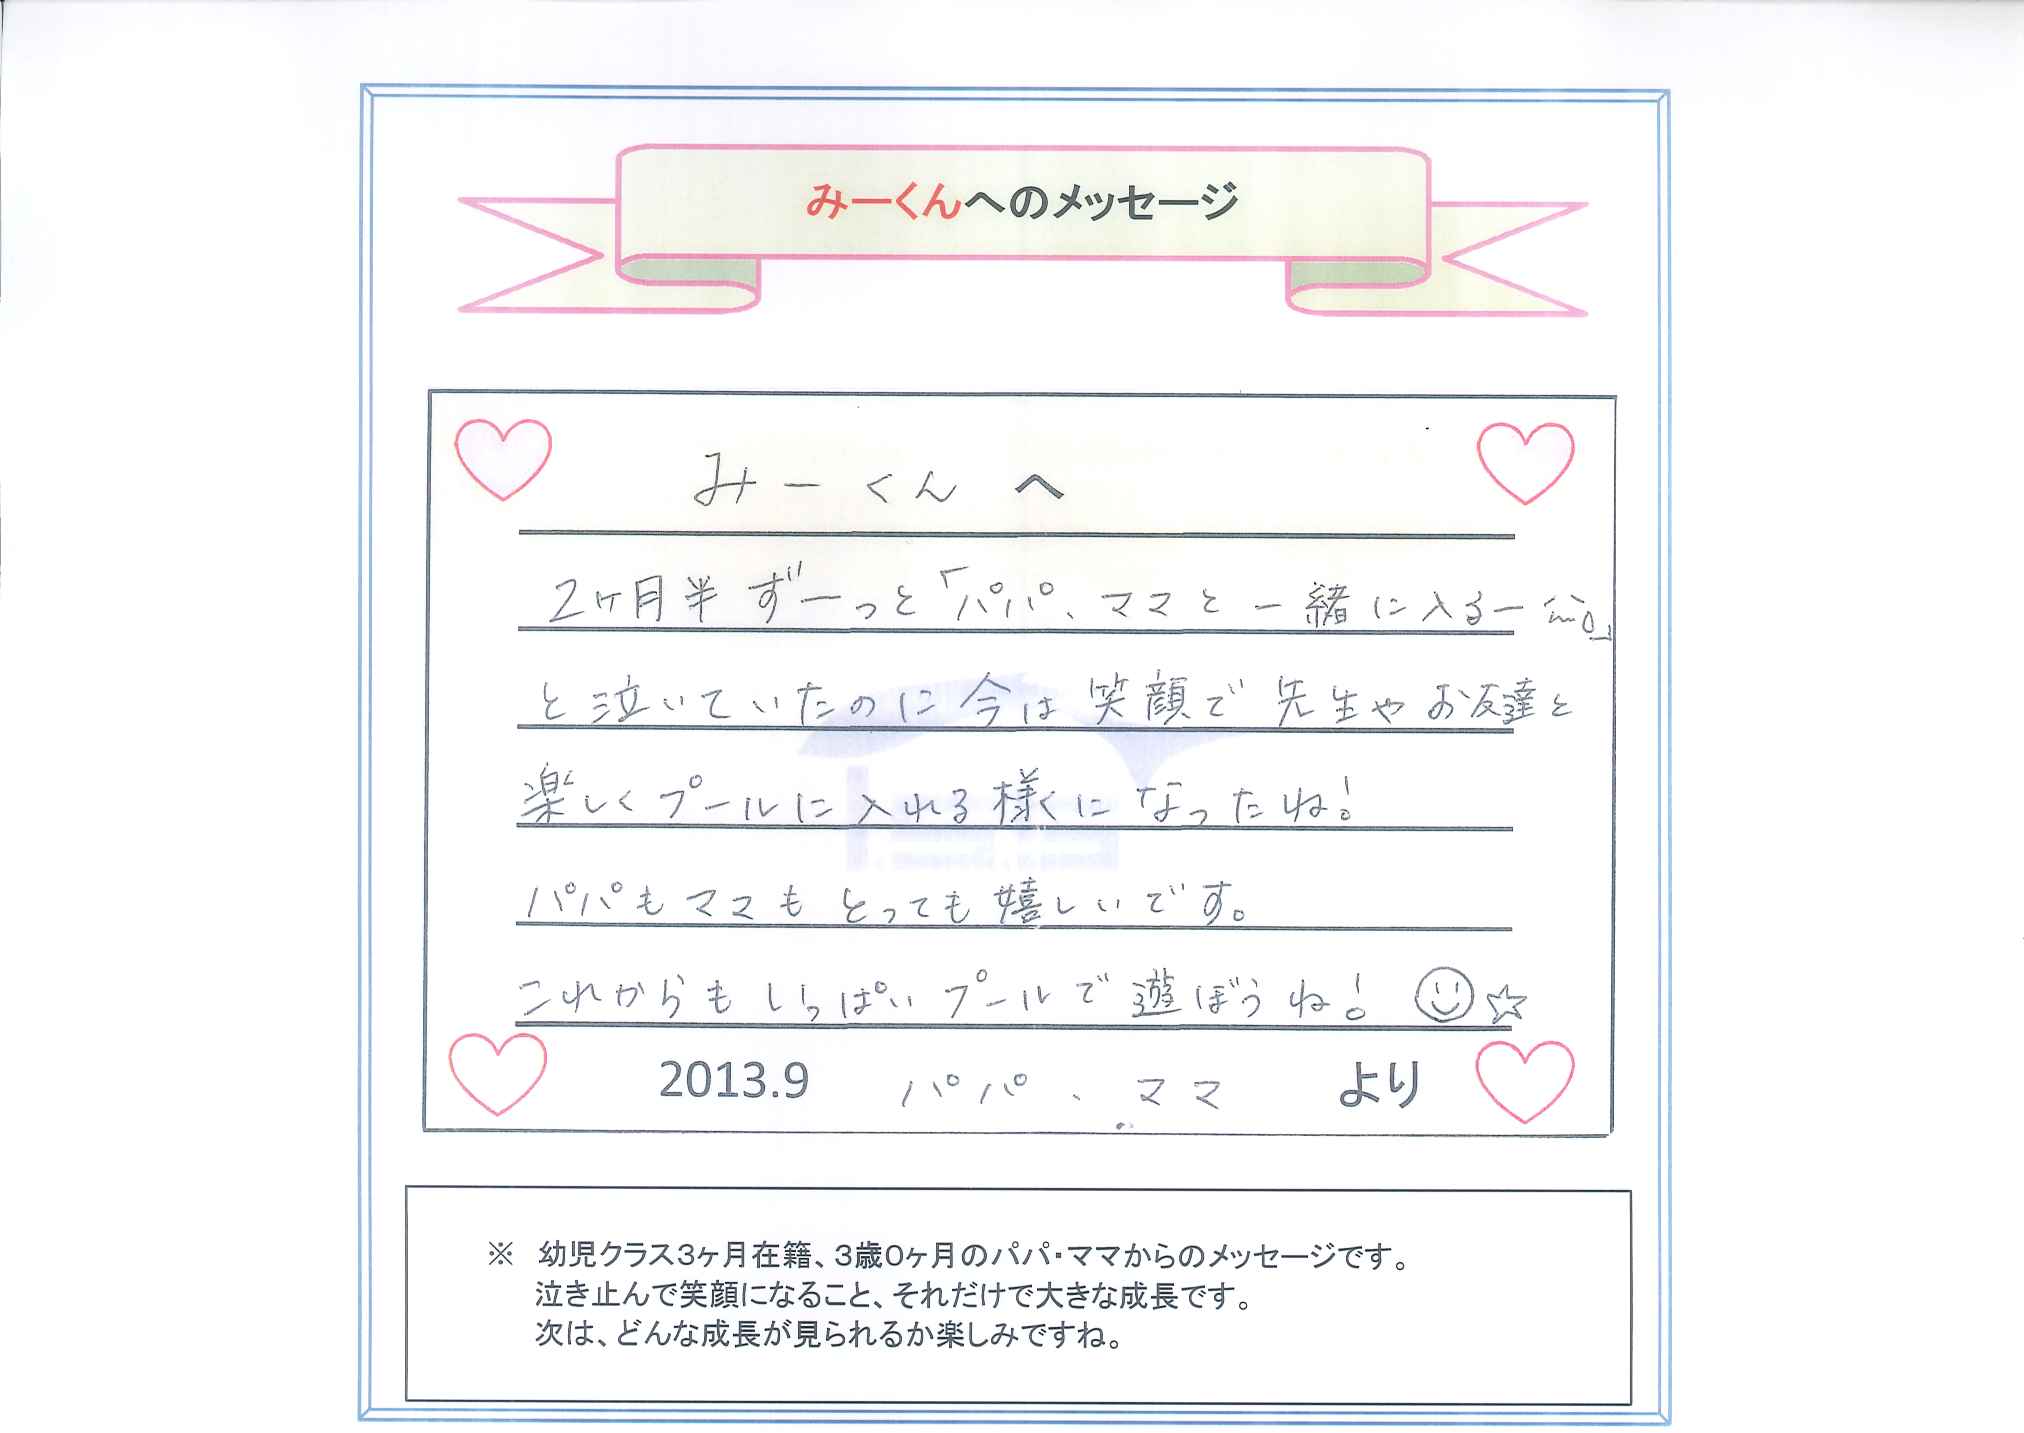 みーくんへのメッセージ
みーくんへ
2ヶ月半ずーっと「パパ、ママと一緒に入るー」
と泣いていたのに今は笑顔で先生やお友達と
楽しくプールに入れる様くになったね!
パパもママもとっても嬉しいです。
これからもいっぱいプールで遊ぼうね! ☺☆
2013.9 パパ、ママ より
※ 幼児クラス3ヶ月在籍、3歳0ヶ月のパパ・ママからのメッセージです。
泣き止んで笑顔になること、それだけで大きな成長です。
次は、どんな成長が見られるか楽しみですね。